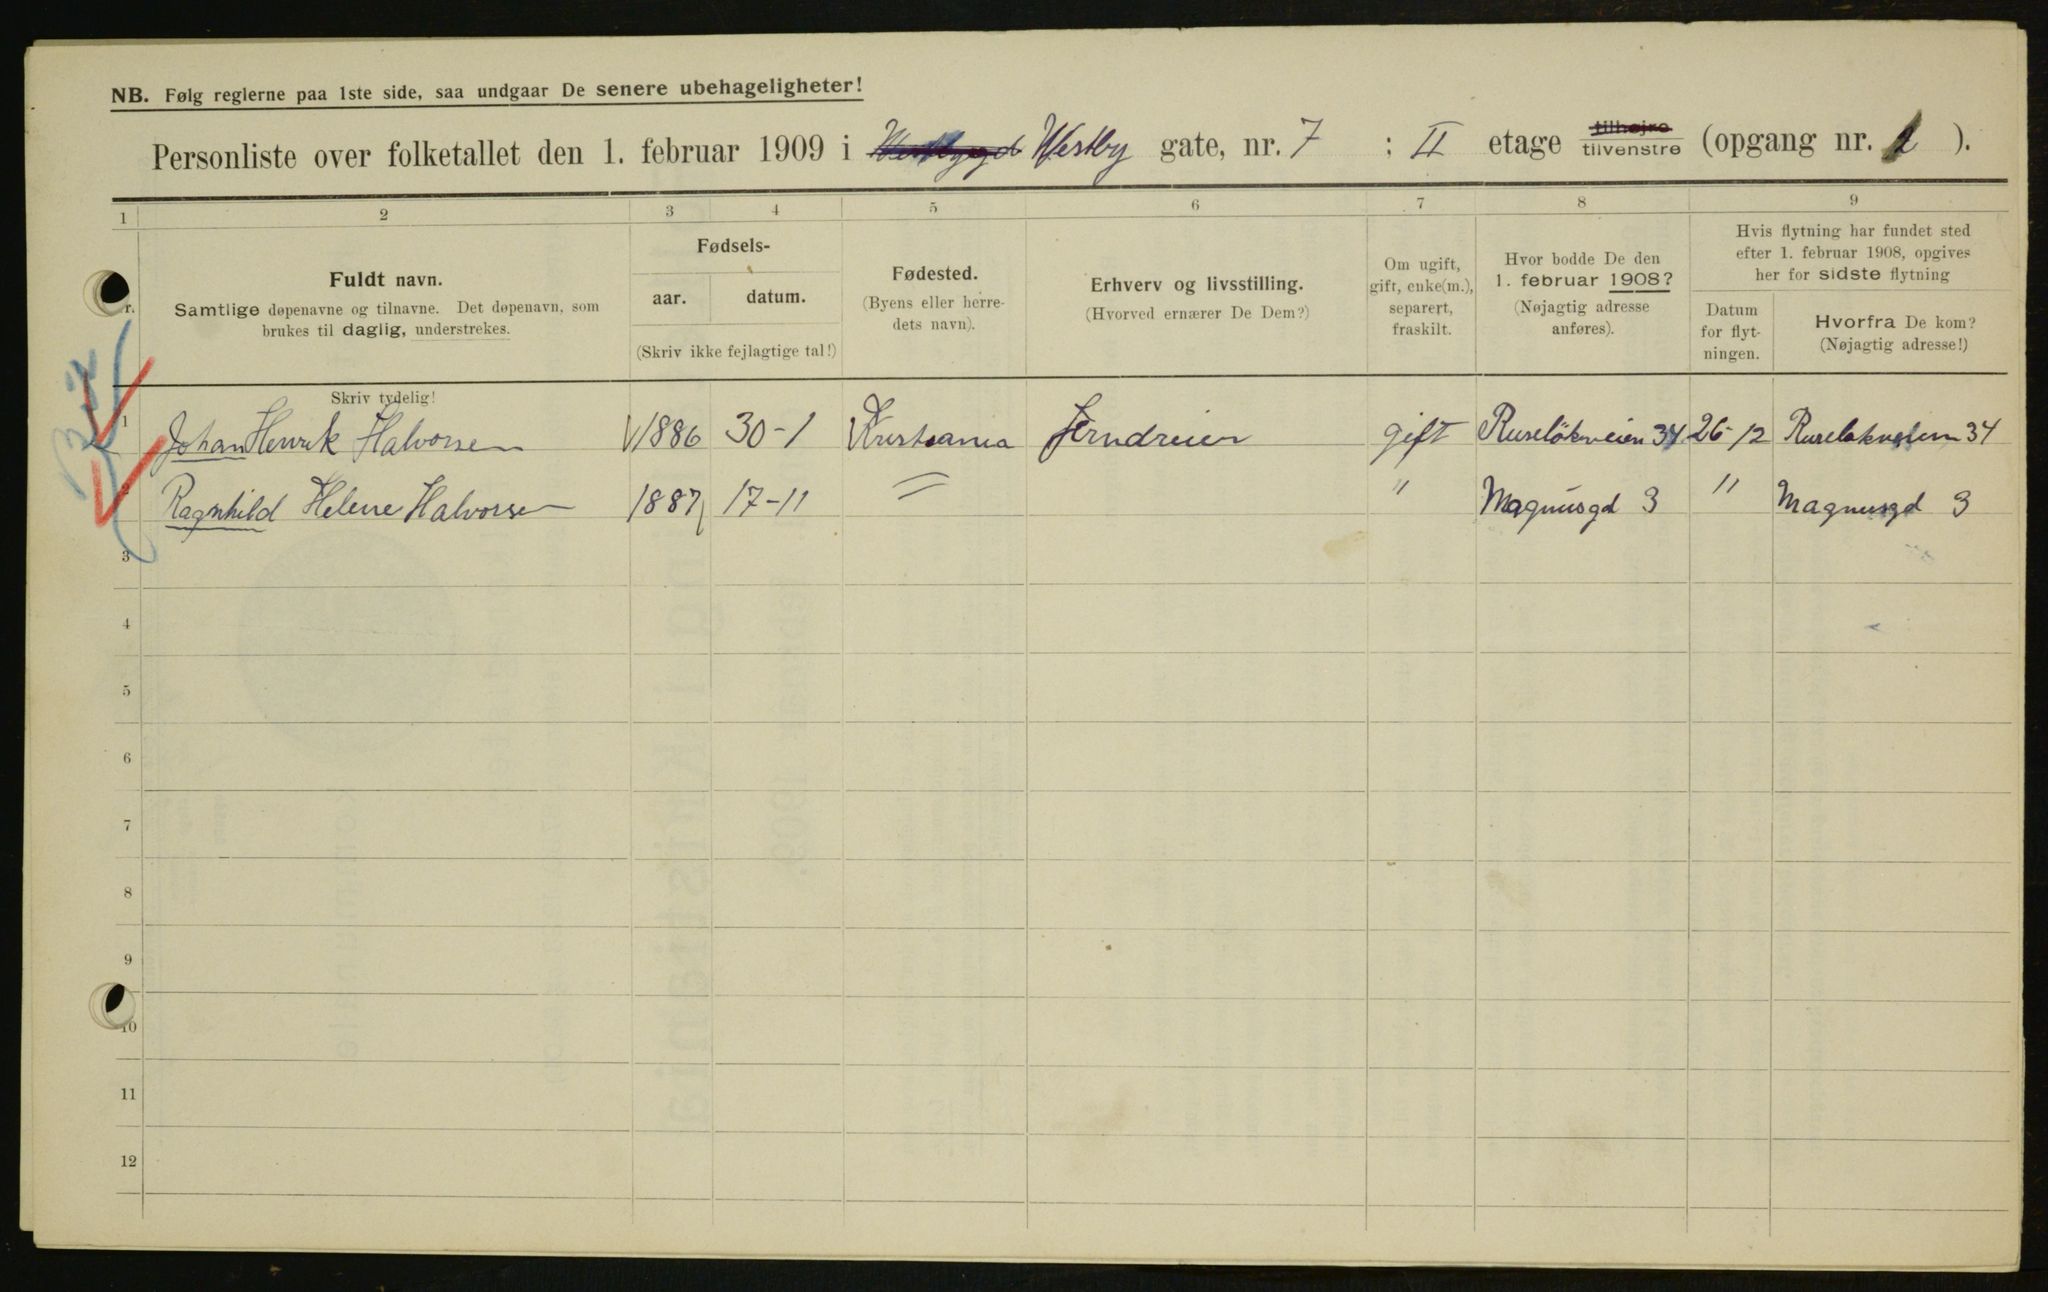 NB. Følg reglerne paa 1ste side, saa undgaar De senere ubehageligheter!
Personliste over folketallet den 1. februar 1909 i Westby gate, nr. 7 : II etage tilhøjre tilvenstre (opgang nr. 2 ).
1 2 3 4 5 6 7 8 9
Fuldt navn.
Samtlige døpenavne og tilnavne. Det døpenavn, som
brukes til daglig, understrekes.
Skriv tydelig!
Fødsels-
aar. datum.
(Skriv ikke fejlagtige tal!)
Fødested.
(Byens eller herre-
dets navn).
Erhverv og livsstilling.
(Hvorved ernærer De Dem?)
Om ugift,
gift, enke(m.),
separert,
fraskilt.
Hvor bodde De den
1. februar 1908?
(Nøjagtig adresse
anføres).
Hvis flytning har fundet sted
efter 1. februar 1908, opgives
her for sidste flytning
Datum
for flyt-
ningen.
Hvorfra De kom?
(Nøjagtig adresse!)
1 Johan Henrik Halvorsen 1886 30-1 Kristiania Jerndreier gift Ruseløkveien 34 26-12 Ruseløkveien 34
2 Ragnhild Helene Halvorsen 1887 17-11 = " Magnusgd 3 " Magnusgd 3
3
4
5
6
7
8
9
10
11
12